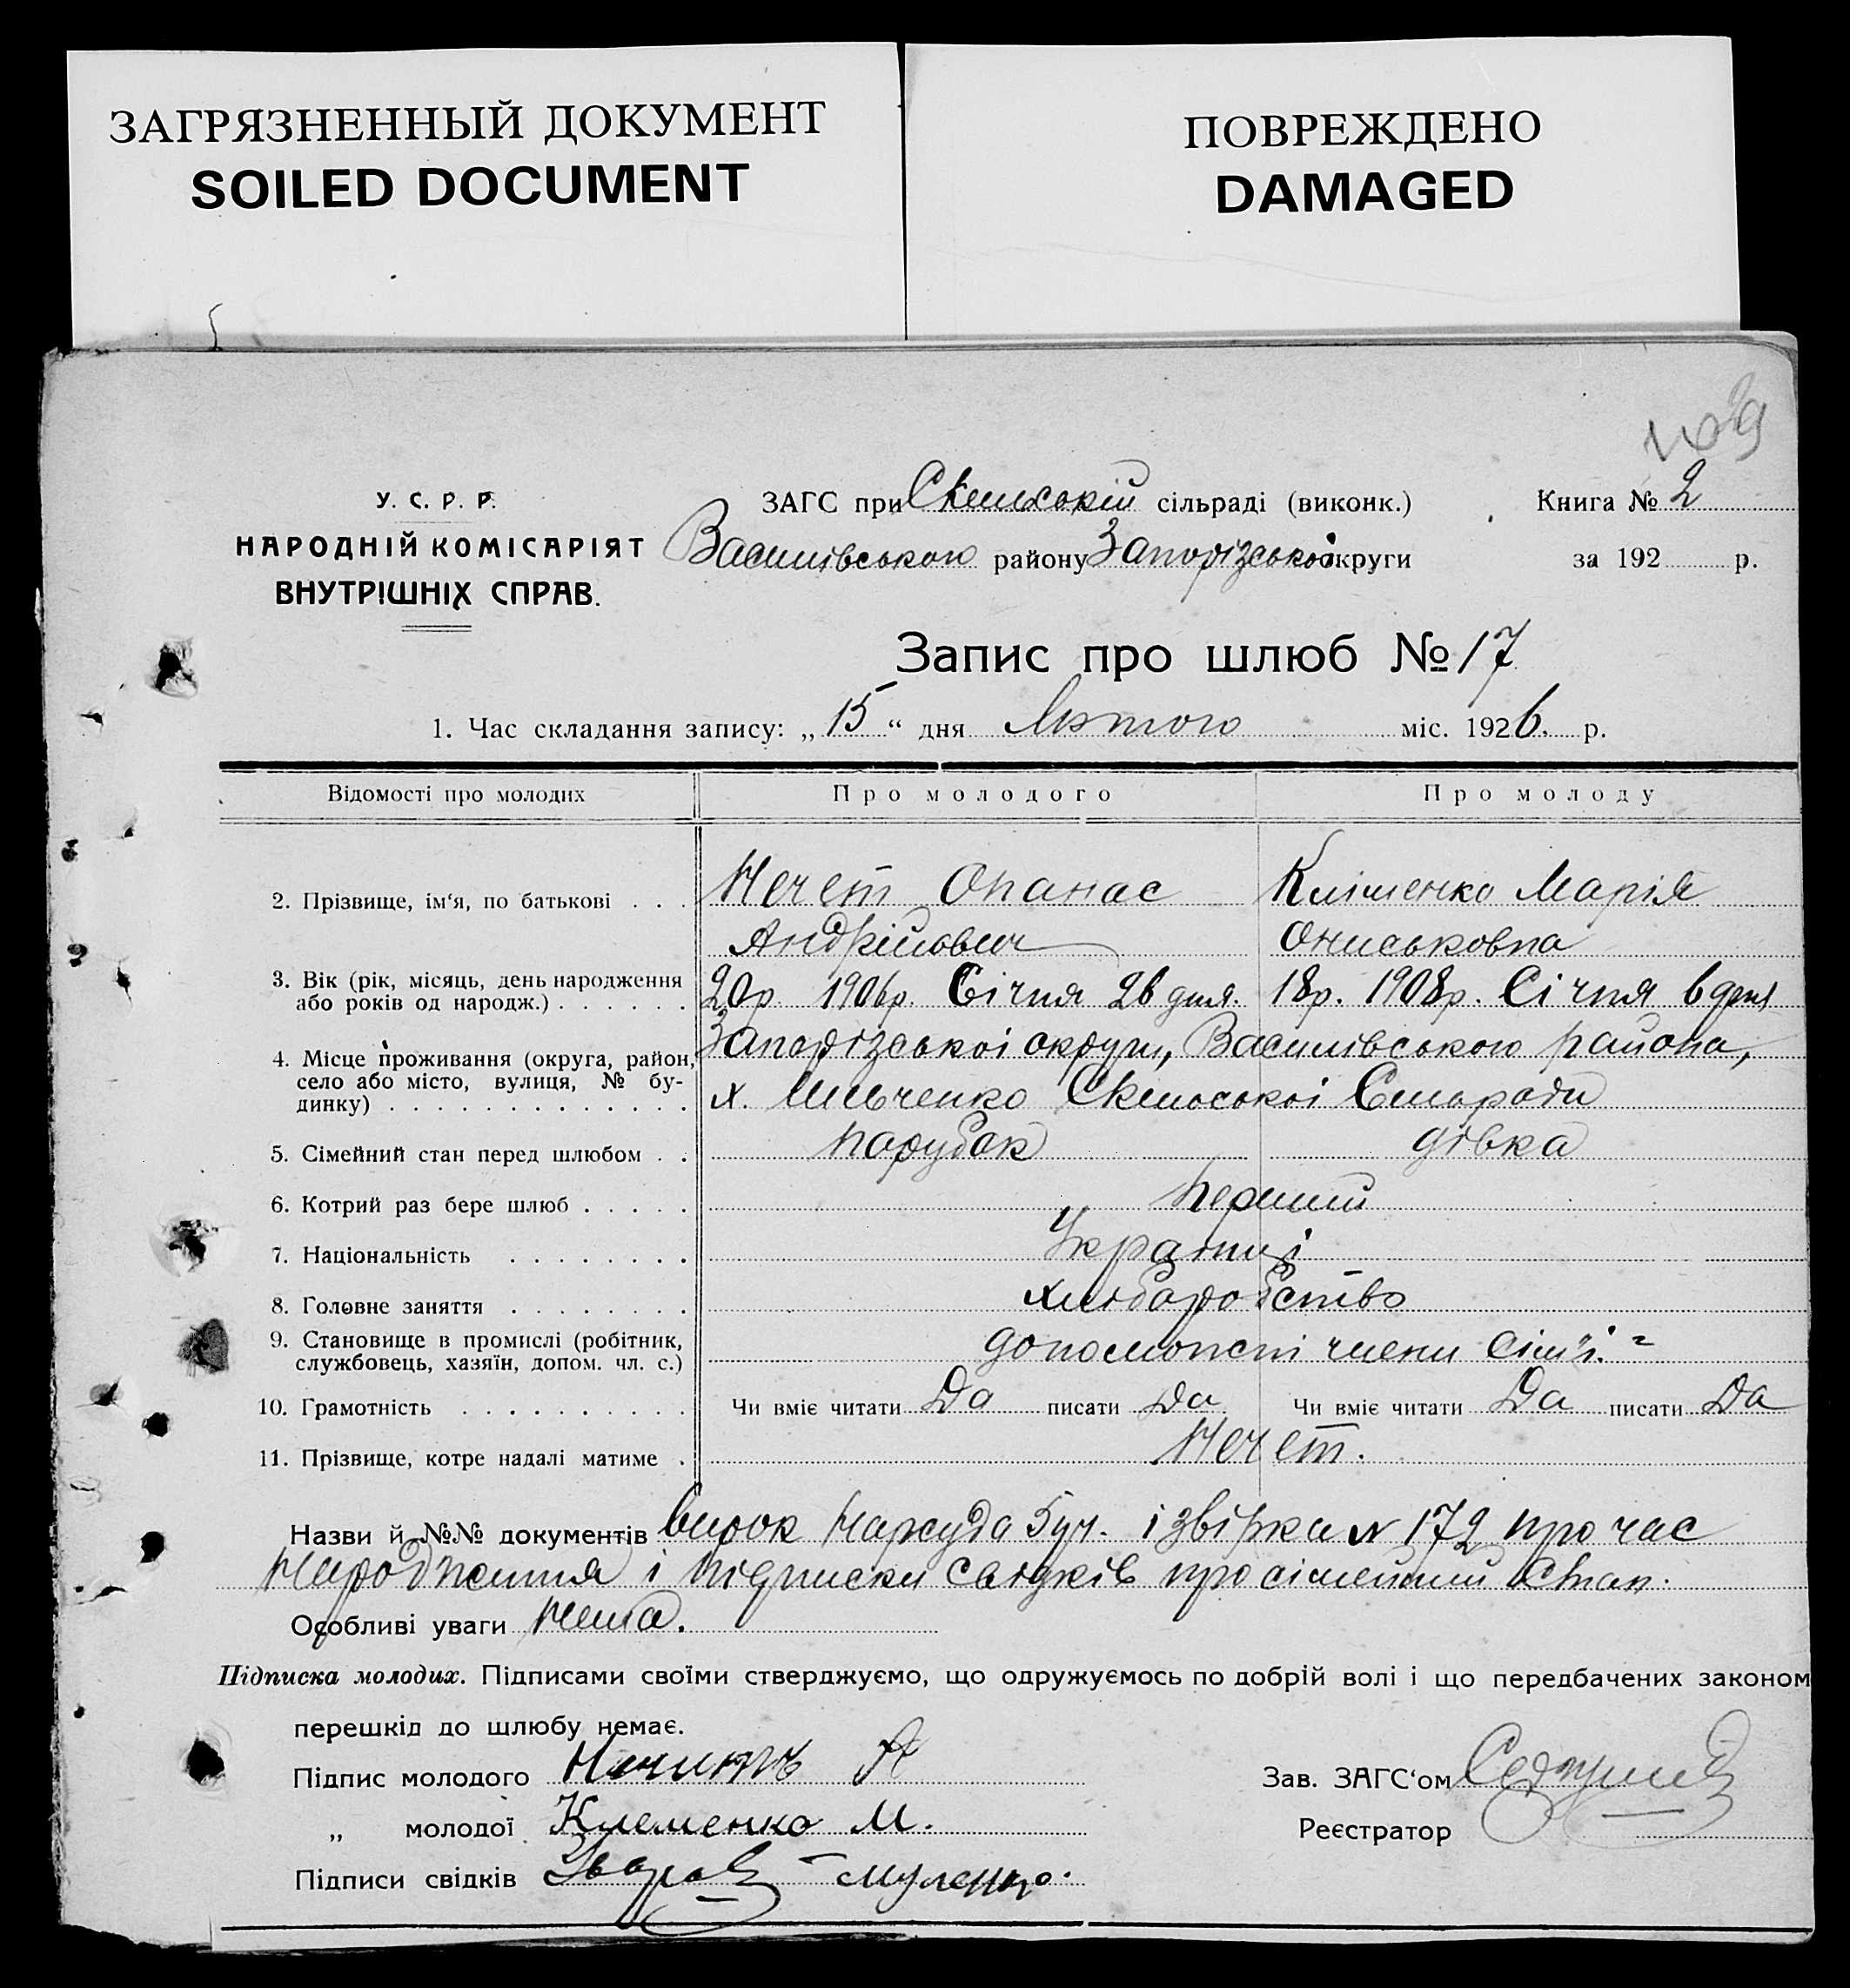 ЗАГРЯЗНЕННЫЙ ДОКУМЕНТ
SOILED DOCUMENT
ПОВРЕЖДЕНО
DAMAGED
У. С. Р. Р.
НАРОДНІЙ КОМІСАРІЯТ
ВНУТРІШНІХ СПРАВ.
ЗАГС при Скельській сільраді (виконк.)
Василівського району Запорізської округи
Книга № 2
за 192 р.
Запис про шлюб № 17
1. Час складання запису: „ 15 “ дня Лютого міс. 1926. р.
Відомості про молодих Про молодого Про молоду
2. Прізвище, ім‘я, по батькові . . . Нечет Опанас Кліменко Марія
Андрійович Ониськовна
3. Вік (рік, місяць, день народження
або років од народж.) . . . . . . 20р. 1906р. Січня 26 дня. 18р. 1908р. Січня 6 дня
4. Місце проживання (округа, район, Запорізської округи, Василівського района,
село або місто, вулиця, № бу-
динку) . . . . . . . . . . . . . х. Ильченко Скельоської Сільради
5. Сімейний стан перед шлюбом . . парубок дівка
6. Котрий раз бере шлюб . . . . . перший
7. Національність . . . . . . . . Українці
8. Головне заняття . . . . . . . . хліборобство
9. Становище в промислі (робітник,
службовець, хазяїн, допом. чл. с.) допоможні члени сім'ї.
10. Грамотність . . . . . . . . . . Чи вміє читати Да писати Да Чи вміє читати Да писати Да
11. Прізвище, котре надалі матиме . Нечет.
Назви й №№ документів вирок Нарсуда 5 уч. і звірка № 172 про час
народження і підписки свідків про сімейний стан.
Особливі уваги нема.
Підписка молодих. Підписами своїми стверджуємо, що одружуємось по добрій волі і що передбачених законом
перешкід до шлюбу немає.
Підпис молодого Ничитъ А
„ молодої Клеменко М.
Підписи свідків
Зав. ЗАГС‘ом
Реєстратор